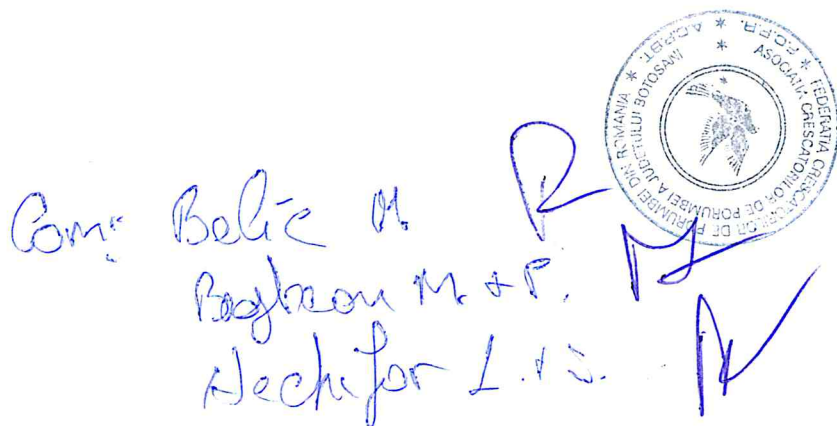 Com: Belic M.
M. + P.
Nechifor L. + S.
FEDERATIA CRESCATORILOR DE PORUMBEI DIN ROMANIA * F.C.P.R. *
ASOCIATIA CRESCATORILOR DE PORUMBEI A JUDETULUI BOTOSANI * A.C.P.BT. *